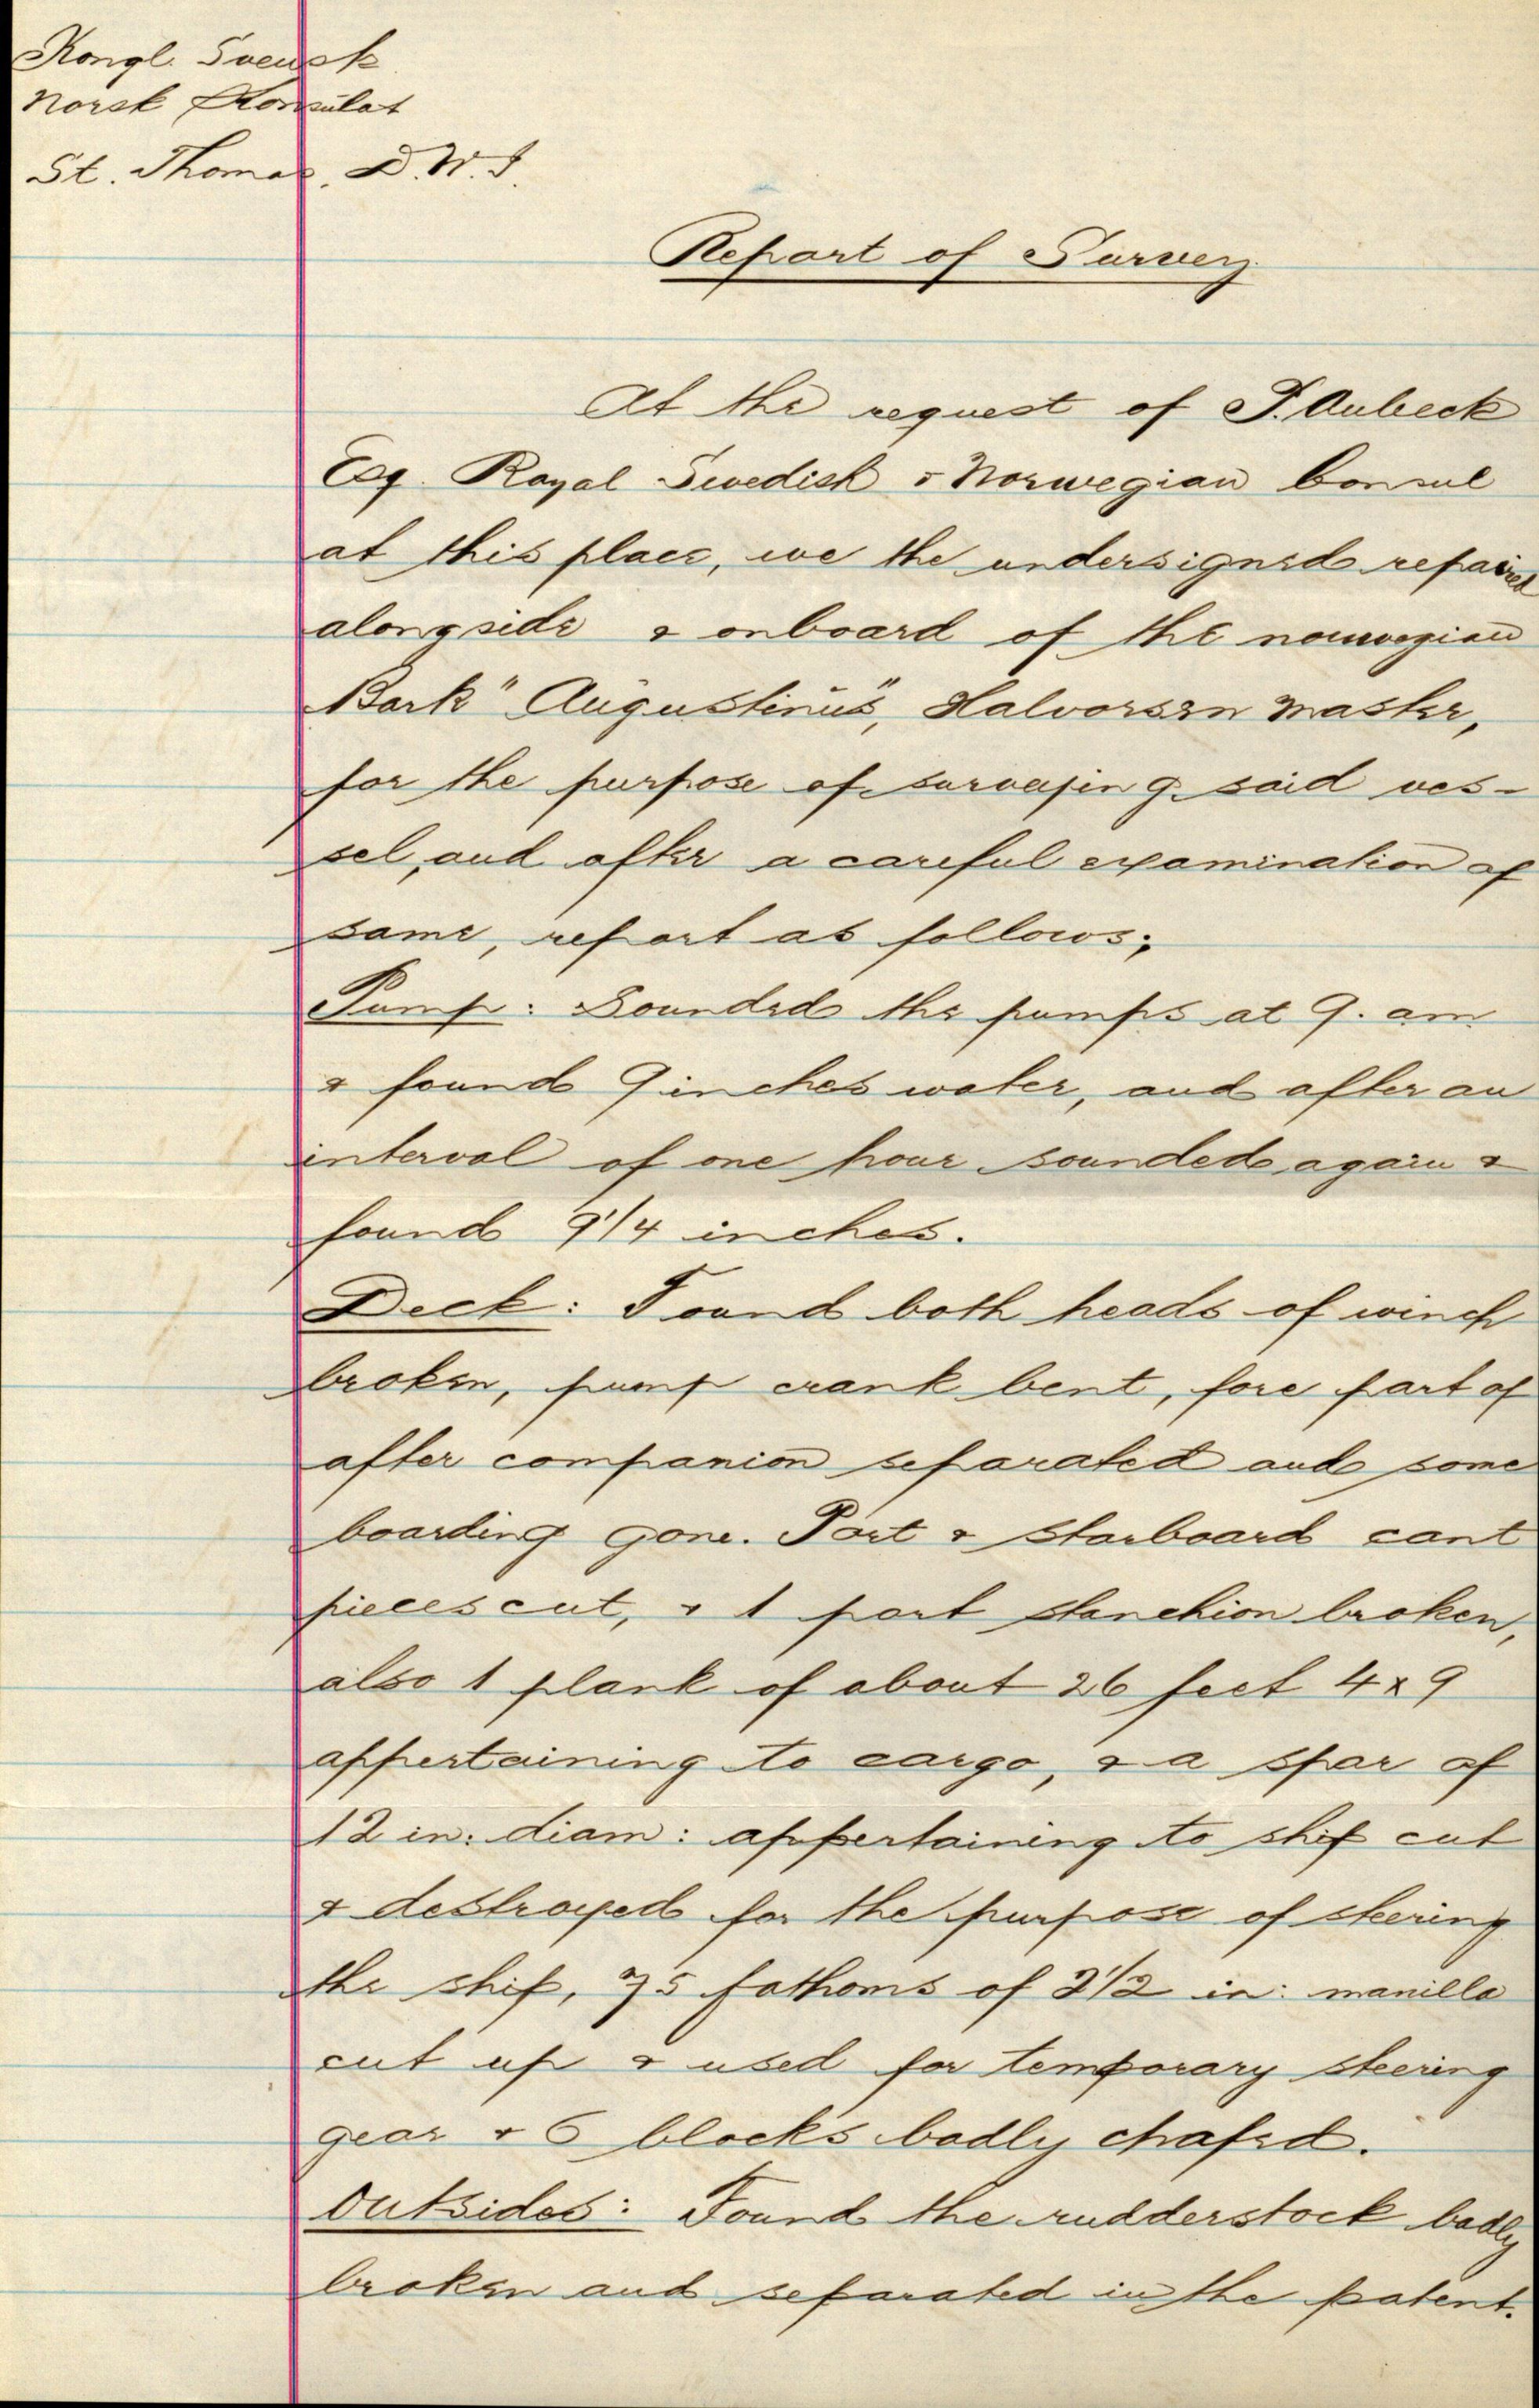 Kongl. Svensk
Norsk Konsulat
St. Thomas, D.W.I.
Report of Survey
At the request of
Esq. Royal Swedish & Norwegian Consul
at this place, we the undersigned repaired
alongside & onboard of the norwegian
Bark "Augustinus", Halvorsen Master,
for the purpose of surveying said ves-
sel, and after a careful examination of
same, report as follows;
Pump: Sounded the pumps at 9. am
& found 9 inches water, and after an
interval of one hour sounded again &
found 9 1/4 inches.
Deck: Found both heads of winch
broken, pump crank bent, fore part of
after companion separated and some
boarding gone. Port & Starboard cant
pieces cut, & 1 port stanchion broken,
also 1 plank of about 26 feet 4 x 9
appertaining to cargo, & a spar of
12 in: diam: appertaining to ship cut
& destroyed for the purpose of steering
the ship, 75 fathoms of 2 1/2 in: manilla
cut up & used for temporary steering
gear & 6 blocks badly chafed.
Outsides: Found the rudderstock badly
broken and separated in the patent.